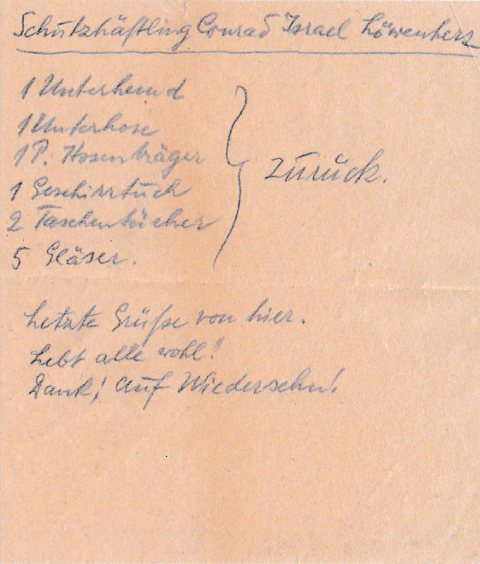 Schutzhäftling Conrad Israel Löwenherz
1 Unterhemd
1 Unterhose
1 P. Hosenträger
1 Geschirrtuch
2 Taschentücher
5 Gläser.
zurück.
Letzte Grüße von hier.
Lebt alle wohl!!
Dank! Auf Wiedersehn!